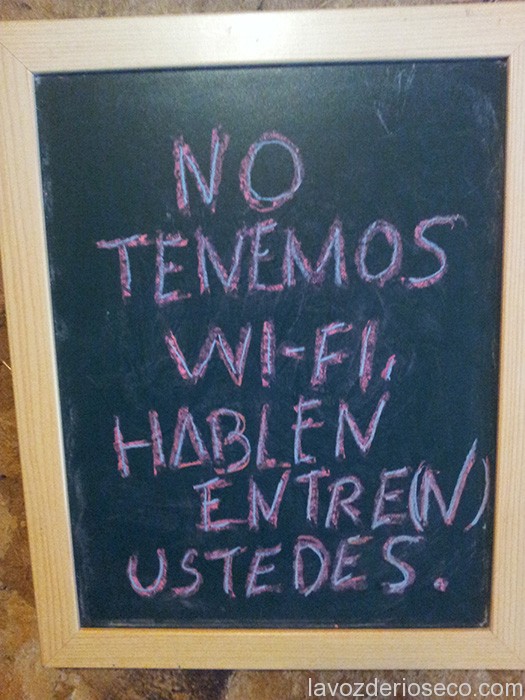 NO
TENEMOS
WI-FI,
HABLEN
ENTRE(N)
USTEDES.
lavozderioseco.com